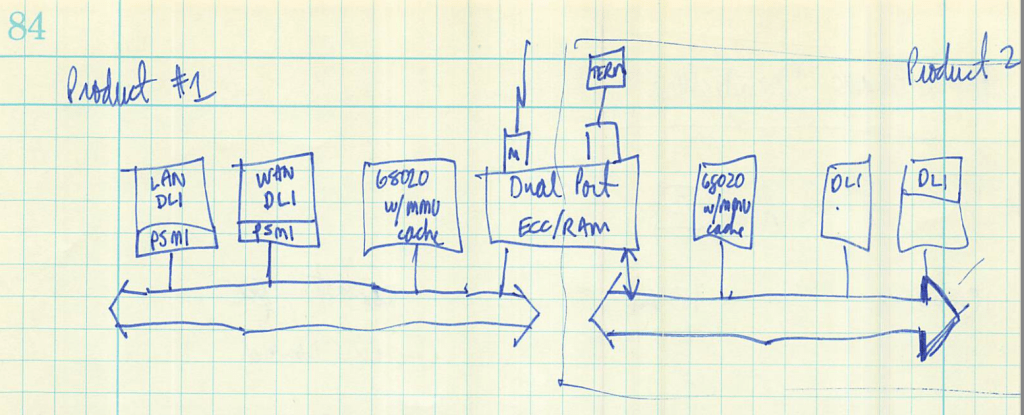 84
Product #1
Product 2
TERM
M
LAN
DLI
PSMI
WAN
DLI
PSMI
68020
w/mmu
cache
Dual Port
ECC/RAM
68020
w/mmu
cache
DLI
DLI